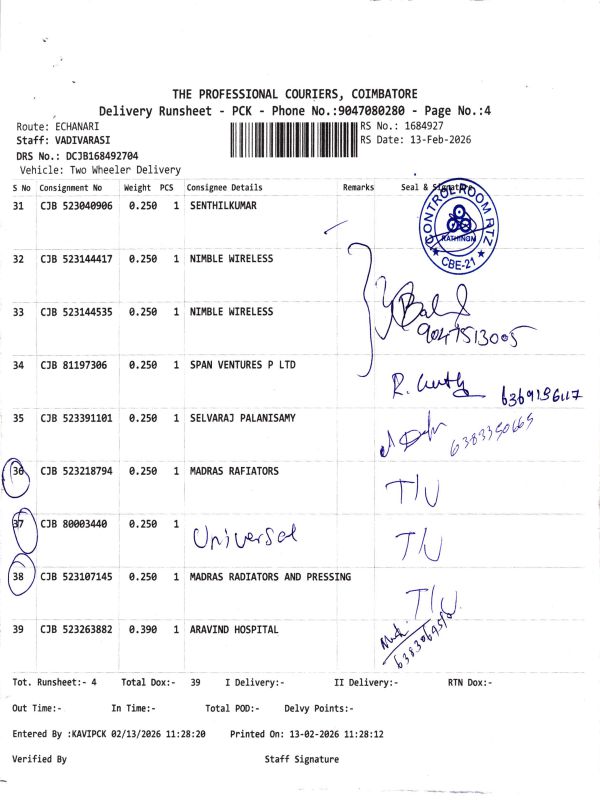 THE PROFESSIONAL COURIERS, COIMBATORE
Delivery Runsheet - PCK - Phone No.:9047080280 - Page No.:4
Route: ECHANARI RS No.: 1684927
Staff: VADIVARASI RS Date: 13-Feb-2026
DRS No.: DCJB168492704
Vehicle: Two Wheeler Delivery
S No Consignment No Weight PCS Consignee Details Remarks Seal & Signature
31 CJB 523040906 0.250 1 SENTHILKUMAR
CONTROL ROOM RTZ
CBE-21
32 CJB 523144417 0.250 1 NIMBLE WIRELESS
33 CJB 523144535 0.250 1 NIMBLE WIRELESS
9047513005
34 CJB 81197306 0.250 1 SPAN VENTURES P LTD
35 CJB 523391101 0.250 1 SELVARAJ PALANISAMY
6383350665
36 CJB 523218794 0.250 1 MADRAS RAFIATORS
T/U
37 CJB 80003440 0.250 1 Universal T/U
38 CJB 523107145 0.250 1 MADRAS RADIATORS AND PRESSING
T/U
39 CJB 523263882 0.390 1 ARAVIND HOSPITAL
Tot. Runsheet:- 4 Total Dox:- 39 I Delivery:- II Delivery:- RTN Dox:-
Out Time:- In Time:- Total POD:- Delvy Points:-
Entered By :KAVIPCK 02/13/2026 11:28:20 Printed On: 13-02-2026 11:28:12
Verified By Staff Signature